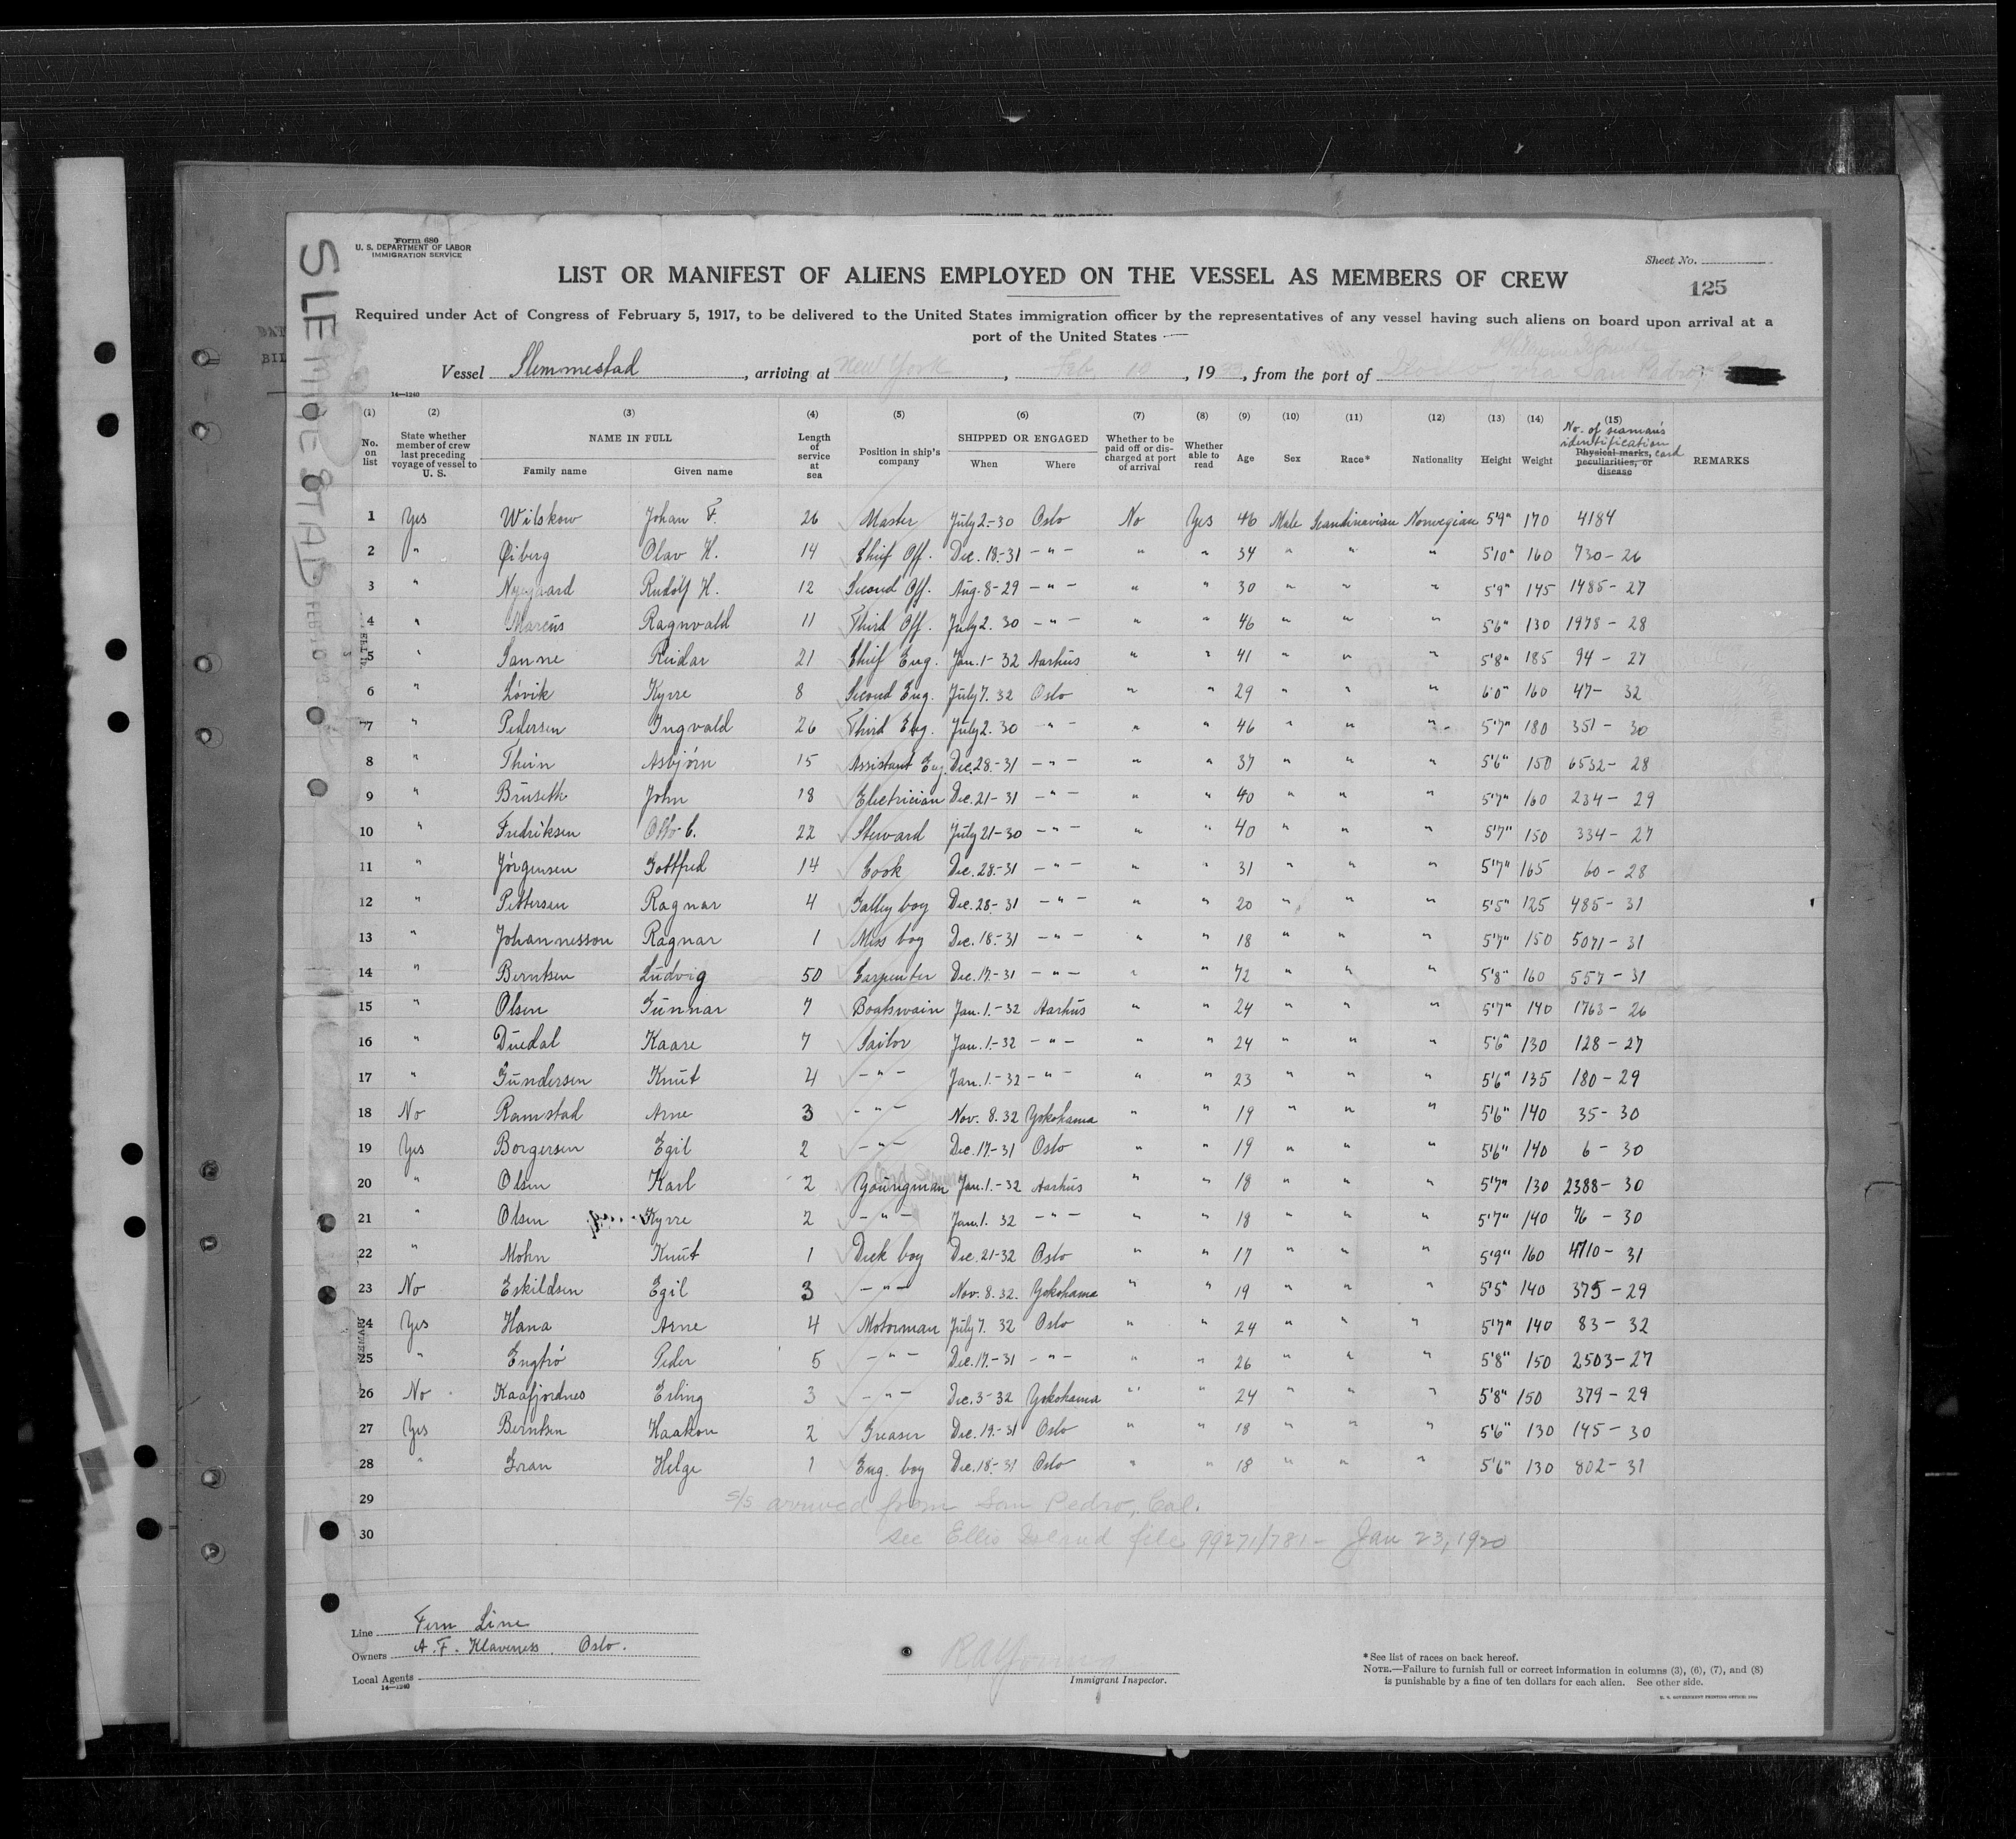 SLEMMESTAD
Form 680
U. S. DEPARTMENT OF LABOR
IMMIGRATION SERVICE
Sheet No.
LIST OR MANIFEST OF ALIENS EMPLOYED ON THE VESSEL AS MEMBERS OF CREW
125
Required under Act of Congress of February 5, 1917, to be delivered to the United States immigration officer by the representatives of any vessel having such aliens on board upon arrival at a
port of the United States
Vessel Slemmestad, arriving at New York, Feb. 10, 1933, from the port of Iloilo via San Pedro
14—1240
(1) (2) (3) (4) (5) (6) (7) (8) (9) (10) (11) (12) (13) (14) (15)
No. on list State whether member of crew last preceding voyage of vessel to U. S. NAME IN FULL Family name Given name Length of service at sea Position in ship's company SHIPPED OR ENGAGED When Where Whether to be paid off or discharged at port of arrival Whether able to read Age Sex Race* Nationality Height Weight No. of seaman's identification card Physical marks, peculiarities, or disease REMARKS
1 Yes Wilskow Johan F. 26 Master July 2.-30 Oslo No Yes 46 Male Scandinavian Norwegian 5'9" 170 4184
2 " Øiberg Olav H. 14 Chief Off. Dec. 18-31 -"- " " 34 " " " 5'10" 160 730-26
3 " Nygaard Rudolf H. 12 Second Off. Aug. 8-29 -"- " " 30 " " " 5'9" 145 1485-27
4 " Marcus Ragnvald 11 Third Off. July 2. 30 -"- " " 46 " " " 5'6" 130 1978-28
5 " Sanne Reidar 21 Chief Eng. Jan. 1-32 Aarhus " " 41 " " " 5'8" 185 94-27
6 " Lövik Kyrre 8 Second Eng. July 7. 32 Oslo " " 29 " " " 6'0" 160 47-32
7 " Pedersen Ingvald 26 Third Eng. July 2. 30 -"- " " 46 " " " 5'7" 180 351-30
8 " Thein Asbjörn 15 Assistant Eng. Dec. 28.-31 -"- " " 37 " " " 5'6" 150 6532-28
9 " Bruseth John 18 Electrician Dec. 21-31 -"- " " 40 " " " 5'7" 160 234-29
10 " Fredriksen Otto C. 22 Steward July 21-30 -"- " " 40 " " " 5'7" 150 334-27
11 " Jörgensen Gottfred 14 Cook Dec. 28.-31 -"- " " 31 " " " 5'7" 165 60-28
12 " Pettersen Ragnar 4 Galley boy Dec. 28-31 -"- " " 20 " " " 5'5" 125 485-31
13 " Johannesson Ragnar 1 Mess boy Dec. 18.-31 -"- " " 18 " " " 5'7" 150 5071-31
14 " Berntsen Ludvig 50 Carpenter Dec. 17-31 -"- " " 72 " " " 5'8" 160 557-31
15 " Olsen Gunnar 7 Boatswain Jan. 1.-32 Aarhus " " 24 " " " 5'7" 140 1763-26
16 " Duedal Kaare 7 Sailor Jan. 1.-32 -"- " " 24 " " " 5'6" 130 128-27
17 " Gundersen Knut 4 -"- Jan. 1.-32 -"- " " 23 " " " 5'6" 135 180-29
18 No Ramstad Arne 3 -"- Nov. 8. 32 Yokohama " " 19 " " " 5'6" 140 35-30
19 Yes Borgersen Egil 2 -"- Dec. 17.-31 Oslo " " 19 " " " 5'6" 140 6-30
20 " Olsen Karl 2 Youngman Jan. 1.-32 Aarhus " " 18 " " " 5'7" 130 2388-30
21 " Olsen Kyrre 2 -"- Jan. 1. 32 -"- " " 18 " " " 5'7" 140 76-30
22 " Mohn Knut 1 Deck boy Dec. 21-32 Oslo " " 17 " " " 5'9" 160 4710-31
23 No Eskildsen Egil 3 -"- Nov. 8. 32. Yokohama " " 19 " " " 5'5" 140 375-29
24 Yes Hana Arne 4 Motorman July 7. 32 Oslo " " 24 " " " 5'7" 140 83-32
25 " Engtrö Peder 5 -"- Dec. 17.-31 -"- " " 26 " " " 5'8" 150 2503-27
26 No Kaafjordnes Erling 3 -"- Dec. 3-32 Yokohama " " 24 " " " 5'8" 150 379-29
27 Yes Berntsen Haakon 2 Greaser Dec. 19.-31 Oslo " " 18 " " " 5'6" 130 145-30
28 " Gran Helge 1 Eng. boy Dec. 18.-31 Oslo " " 18 " " " 5'6" 130 802-31
29 S/S arrived from San Pedro, Cal.
30 see Ellis Island file 99271/781 - Jan 23, 1920
Line Fern Line
Owners A. F. Klaveness. Oslo.
Local Agents
14—1240
R A Young
Immigrant Inspector.
*See list of races on back hereof.
NOTE.—Failure to furnish full or correct information in columns (3), (6), (7), and (8)
is punishable by a fine of ten dollars for each alien. See other side.